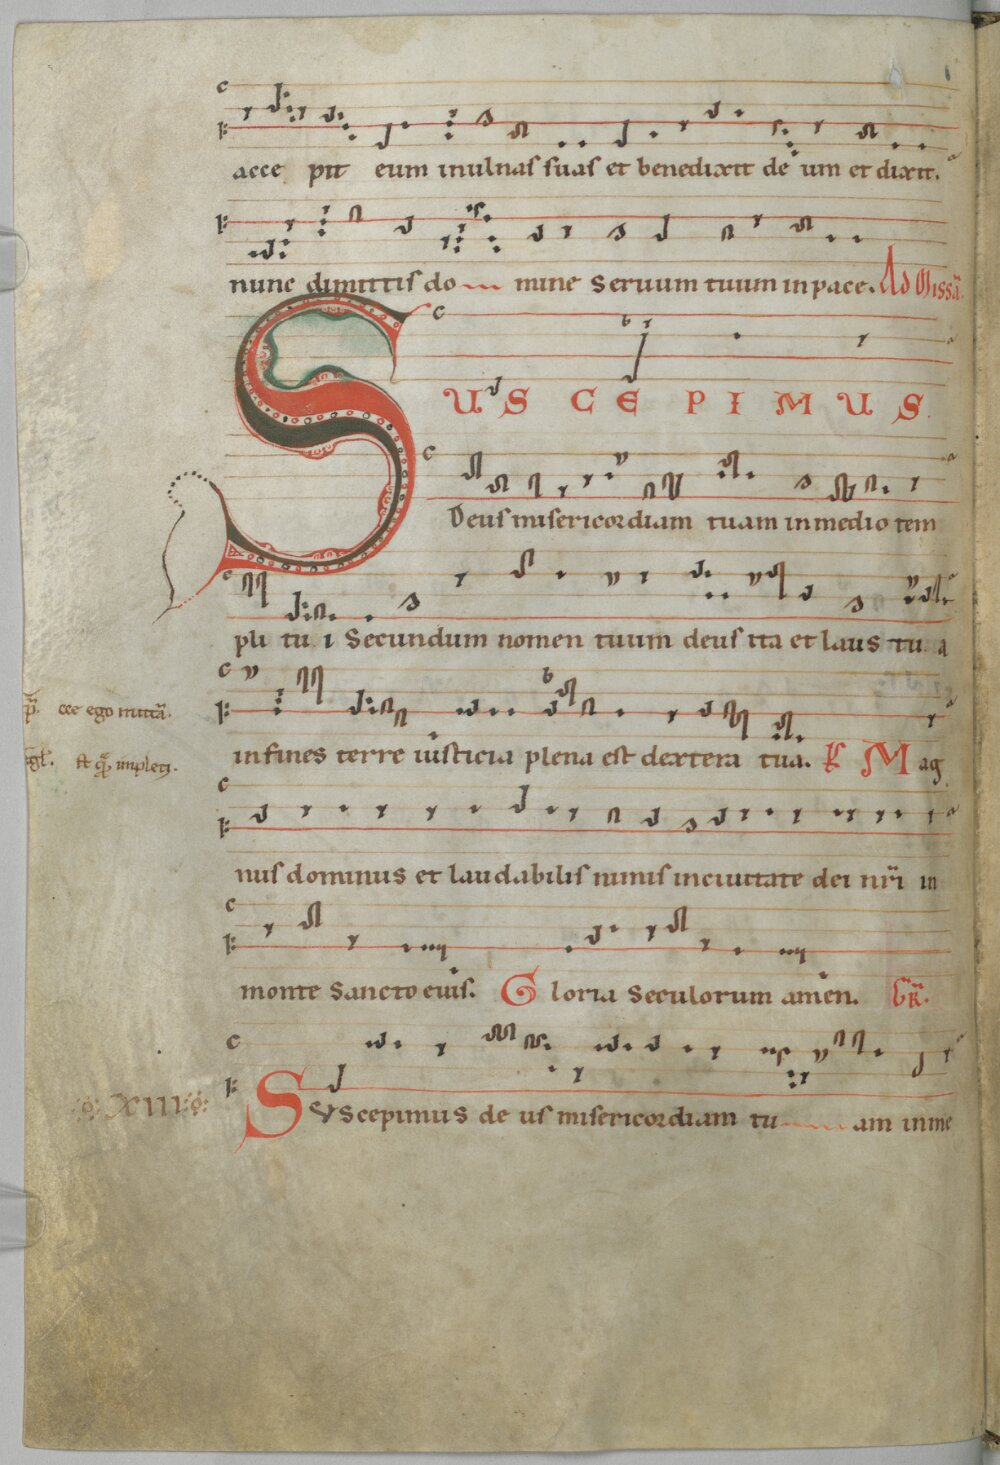 acce pit eum inulnas suas et benedixit de um et dixit.
nunc dimittis do mine seruum tuum inpace. Ad Missā.
SUSCEPIMUS
Deus misericordiam tuam inmedio tem
pli tu i Secundum nomen tuum deus ita et laus tu a
infines terre iusticia plena est dextera tua. Mag
cce ego mittā.
nus dominus et laudabilis nimis inciuitate dei nr̄i in
monte sancto eius. Gloria seculorum amen. GR̄.
XIII
Suscepimus de us misericordiam tu am inme